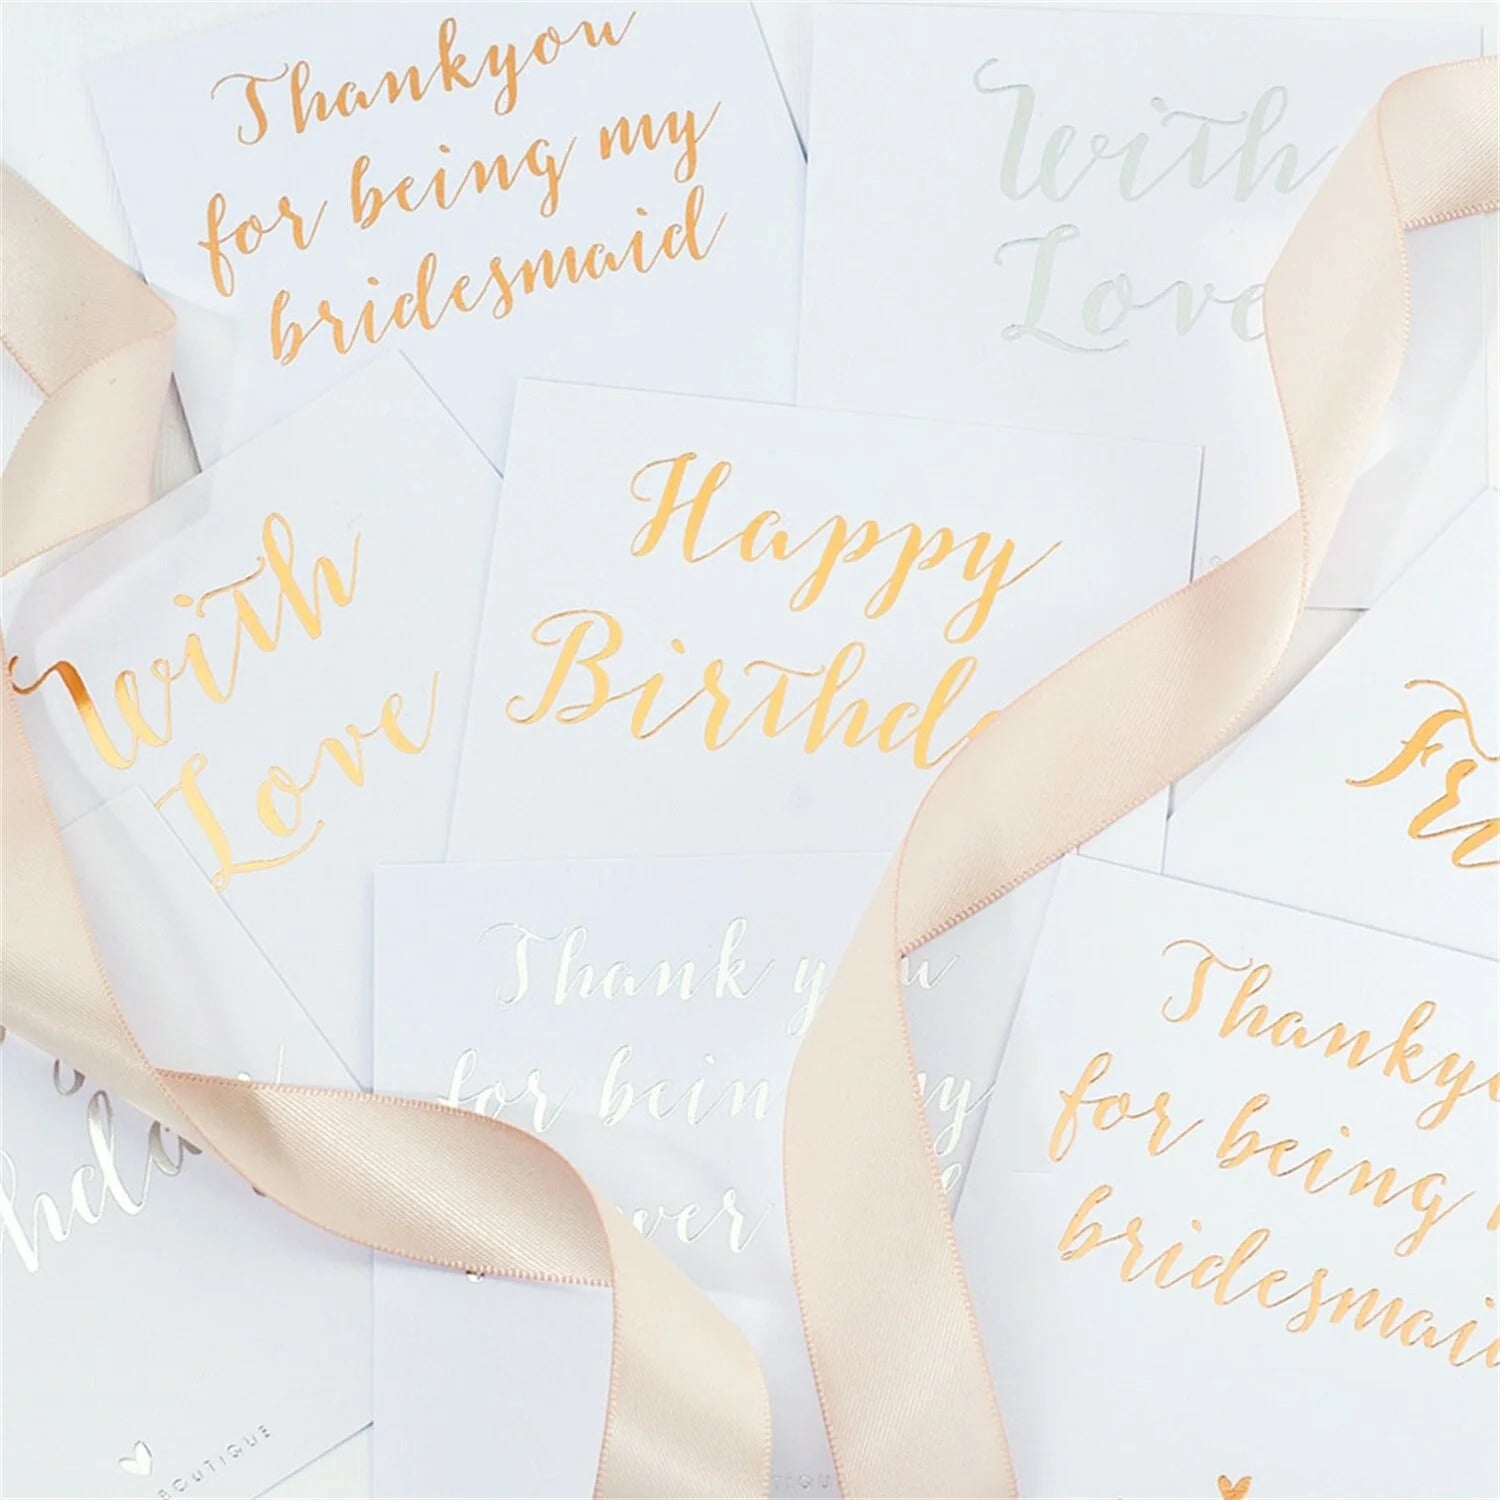 Thankyou
for being my
bridesmaid
With
Love
With
Love
Happy
Birthd
Thank y u
for bein y
wer
Thanky
for being
bridesmai
hday
BOUTIQUE